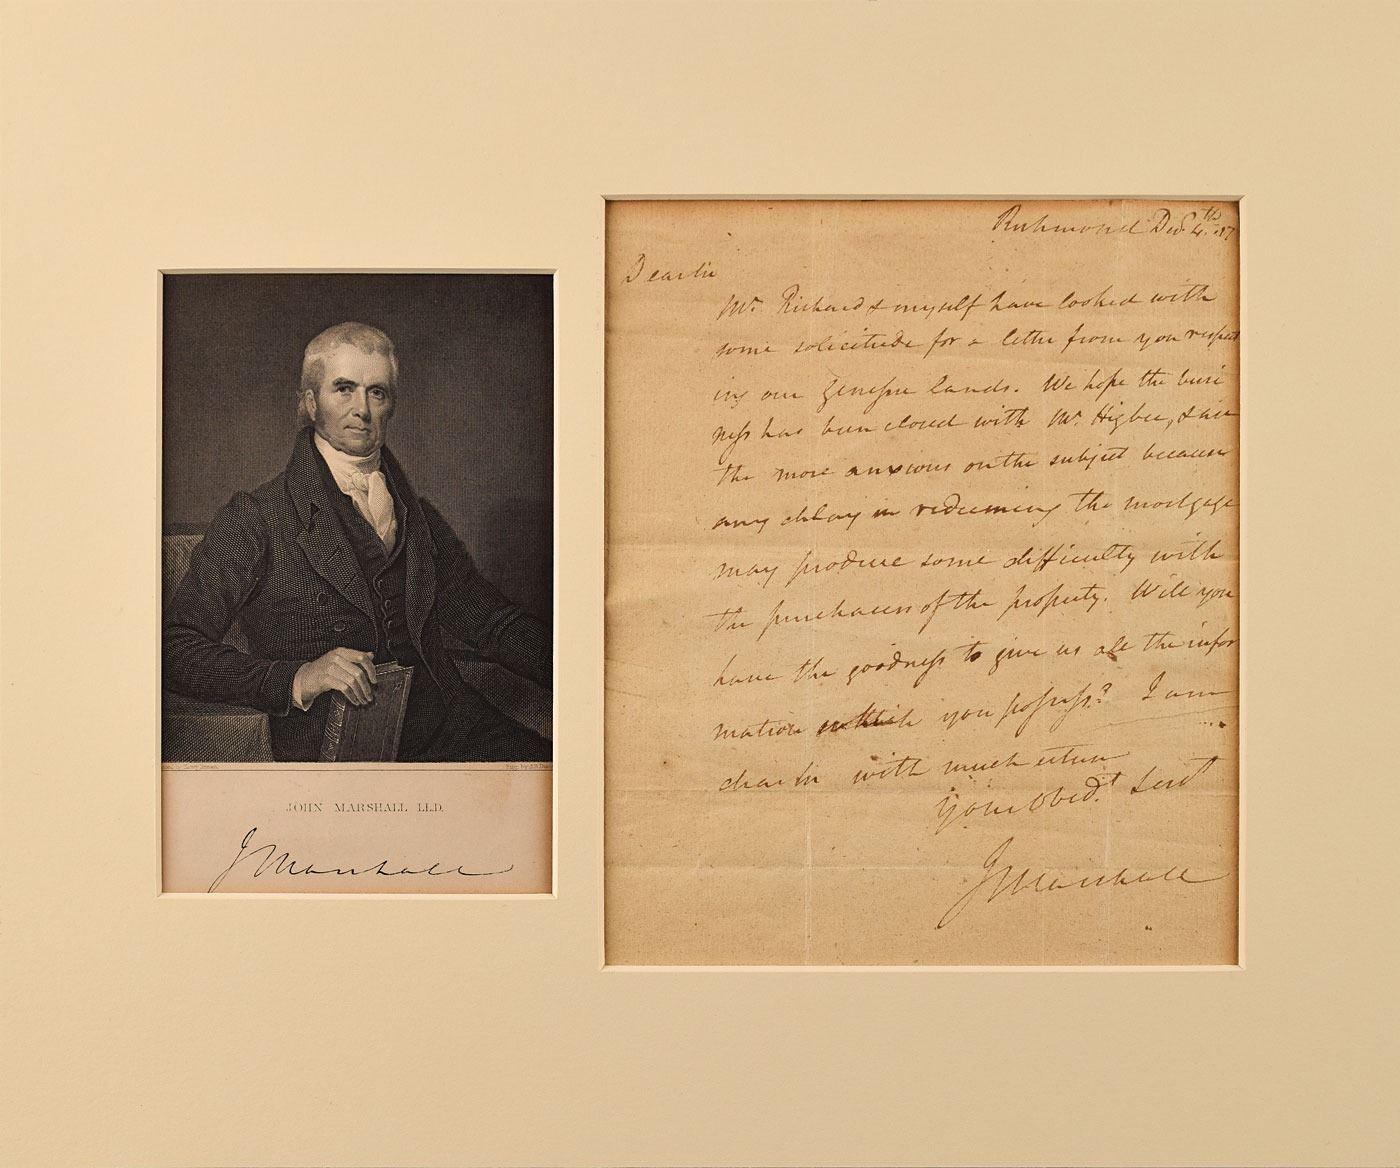 JOHN MARSHALL LLD.
J Marshall
Richmond Dec. 4th. 17
Dear Sir
Mr. Richard & myself have looked with
some solicitude for a letter from you respect
ing our Genesse lands. We hope the busi
ness has been closed with Mr. Higbee, & are
the more anxious on the subject because
any delay in redeeming the mortgage
may produce some difficulty with
the purchasers of the property. Will you
have the goodness to give us all the infor
mation you possess? I am
dear Sir with much esteem
Your Obedt. Servt
J Marshall